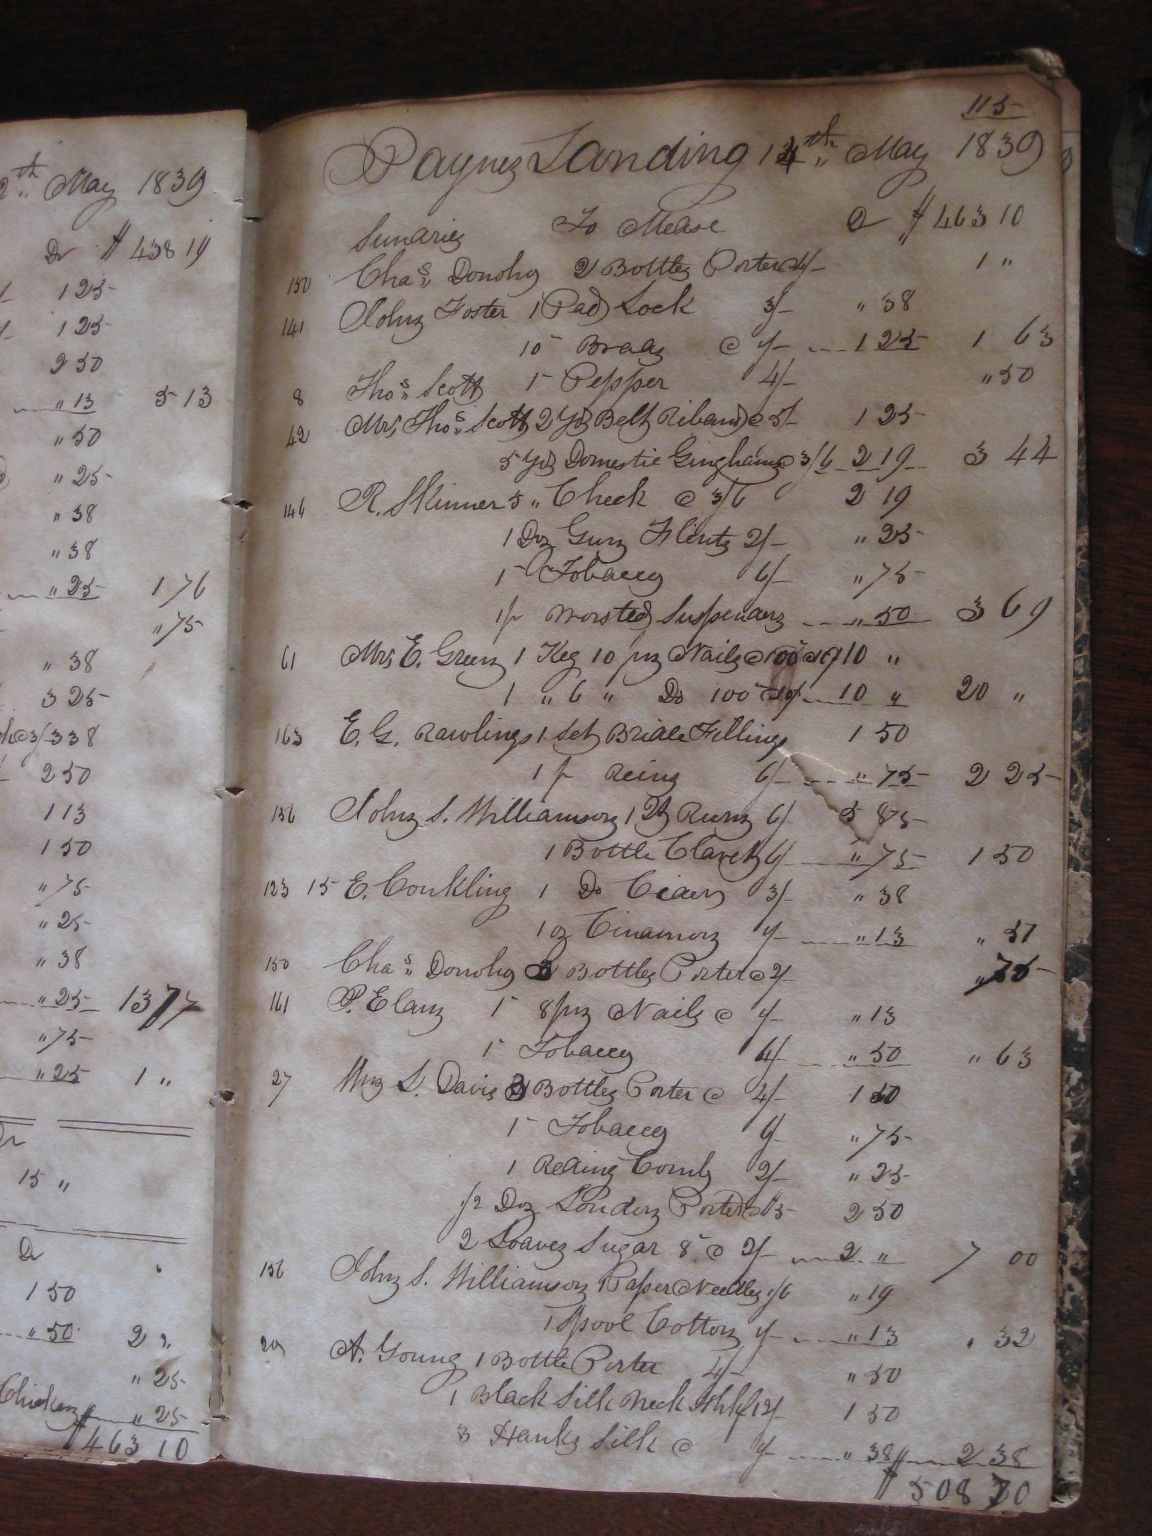 2th May 1839
Dr $ 438 19
1 25
1 25
2 50
" 13 5 13
" 50
" 25
" 38
" 38
" 25 1 76
" 75
" 38
3 25
3/ 3 38
2 50
1 13
1 50
" 75
" 25
" 38
" 25 13 77
" 75
" 25 1 "
15 "
1 50
" 50 2 "
" 25
Chicken " 25
$ 463 10
115
Paynes Landing 14th May 1839
Sunaries To Mease Dr $ 463 10
150 Chas Donohy 2 Bottles Porter 4/- 1 "
141 John Foster 1 Pad Lock 3/- " 38
10 Braag @ 1/- 1 25 1 63
8 Thos Scott 1 Pepper 4/- " 50
42 Mrs Thos Scott 2 Yds Belt Riband @ 5/- 1 25
5 Yds Domestic Gingham @ 3/6 2 19 3 44
146 R. Skinner 5 " Check @ 3/6 2 19
1 Doz Gun Flints 2/- " 25
1 Tobacco 6/- " 75
1 pr Worsted Suspenders " 50 3 69
61 Mrs E. Green 1 Keg 10 pny Nails @ 10 "
1 " 6 " Do 100 10 " 20 "
163 E. G. Rawlings 1 Set Bridle Fillings 1 50
1 pr Reins 6/- " 75 2 25
136 John S. Williamson 1 Qt Rum 6/ 75
1 Bottle Claret 6/- " 75 1 50
123 E. Conkling 1 Do 3/- " 38
1 oz Cinamon 1/- " 13 " 51
150 Chas Donohy 3 Bottles Porter @ 2/ " 75
161 P. Elan 1 8 pny Nails @ 1/- " 13
1 Tobacco 4/- " 50 " 63
27 Wm S. Davis 3 Bottles Porter @ 4/- 1 50
1 Tobacco 6/- " 75
1 Reding Comb 2/- " 25
1/2 Doz London Porter 2 50
2 Loaves Sugar 8 @ 2/- 2 " 7 00
136 John S. Williamson 1 Paper Needles 1/6 " 19
1 Spool Cotton 1/- " 13 " 32
A. Young 1 Bottle Porter 4/- " 50
1 Black Silk Neck Hhkf 12/- 1 50
3 Hanks Silk @ 1/- " 38 2 38
$ 508 70